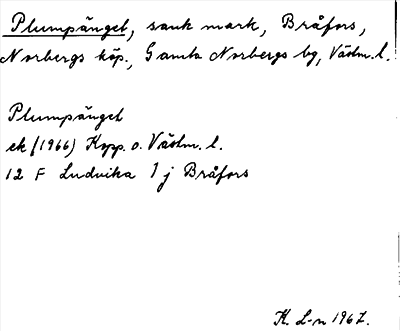 Plumpänget, sank mark, Bråfors,
Norbergs köp., Gamla Norbergs bg, Västm. l.
Plumpänget
ek (1966) Kopp. o. Västm. l.
12 F Ludvika I j Bråfors
K. L-n 1967.